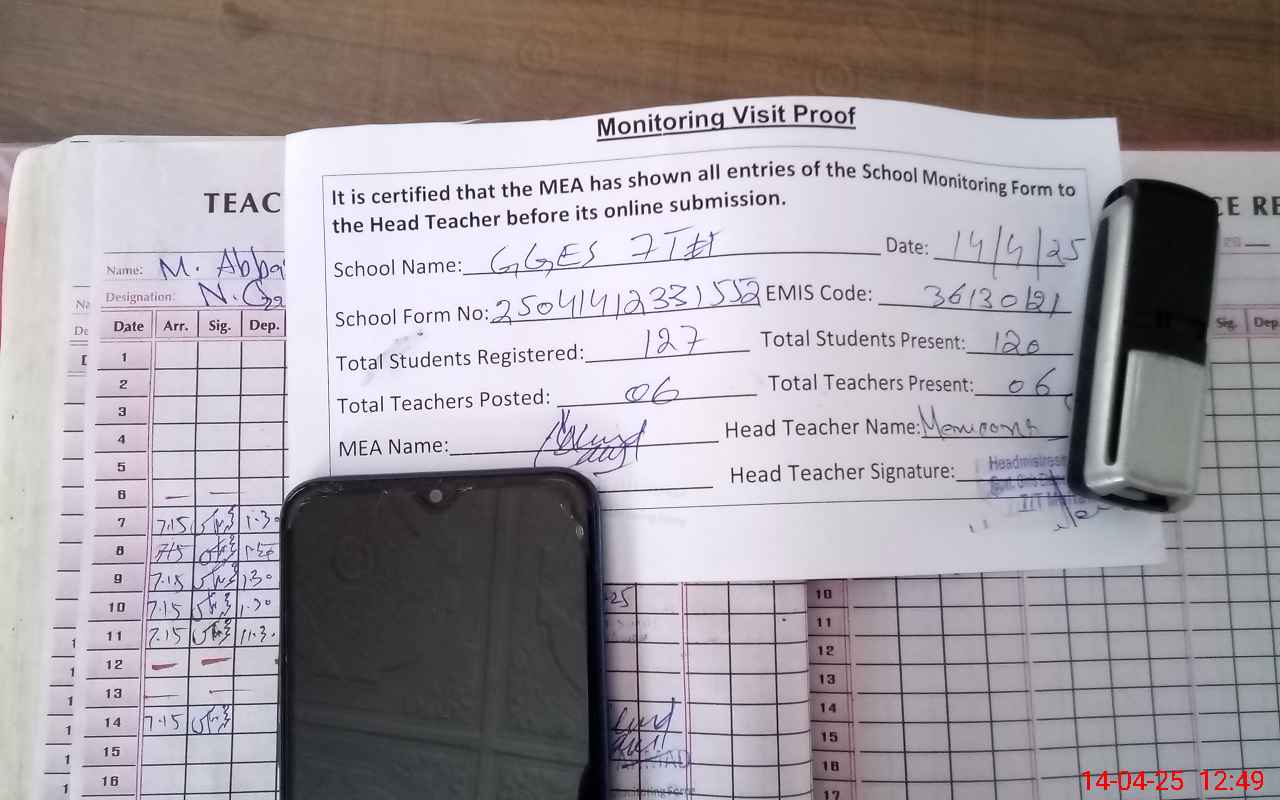 Monitoring Visit Proof
It is certified that the MEA has shown all entries of the School Monitoring Form to
the Head Teacher before its online submission.
School Name: GGES 7TH Date: 14/4/25
School Form No: 25041412331552 EMIS Code: 36130121
Total Students Registered: 127 Total Students Present: 120
Total Teachers Posted: 06 Total Teachers Present: 06
MEA Name: Head Teacher Name:
Head Teacher Signature:
Headmistress
TEAC
CE RE
Name: M. Abba
Designation:
Date Arr. Sig. Dep.
Sig. Dep
1
2
3
4
5
6 — —
7 7.15 1.30
8 7.15
9 7.15 1.30
10 7.15 1.30
11 7.15 11.3
12 — —
13 — —
14 7.15
15
16
-25
10
11
12
13
14
15
16
17
14-04-25 12:49